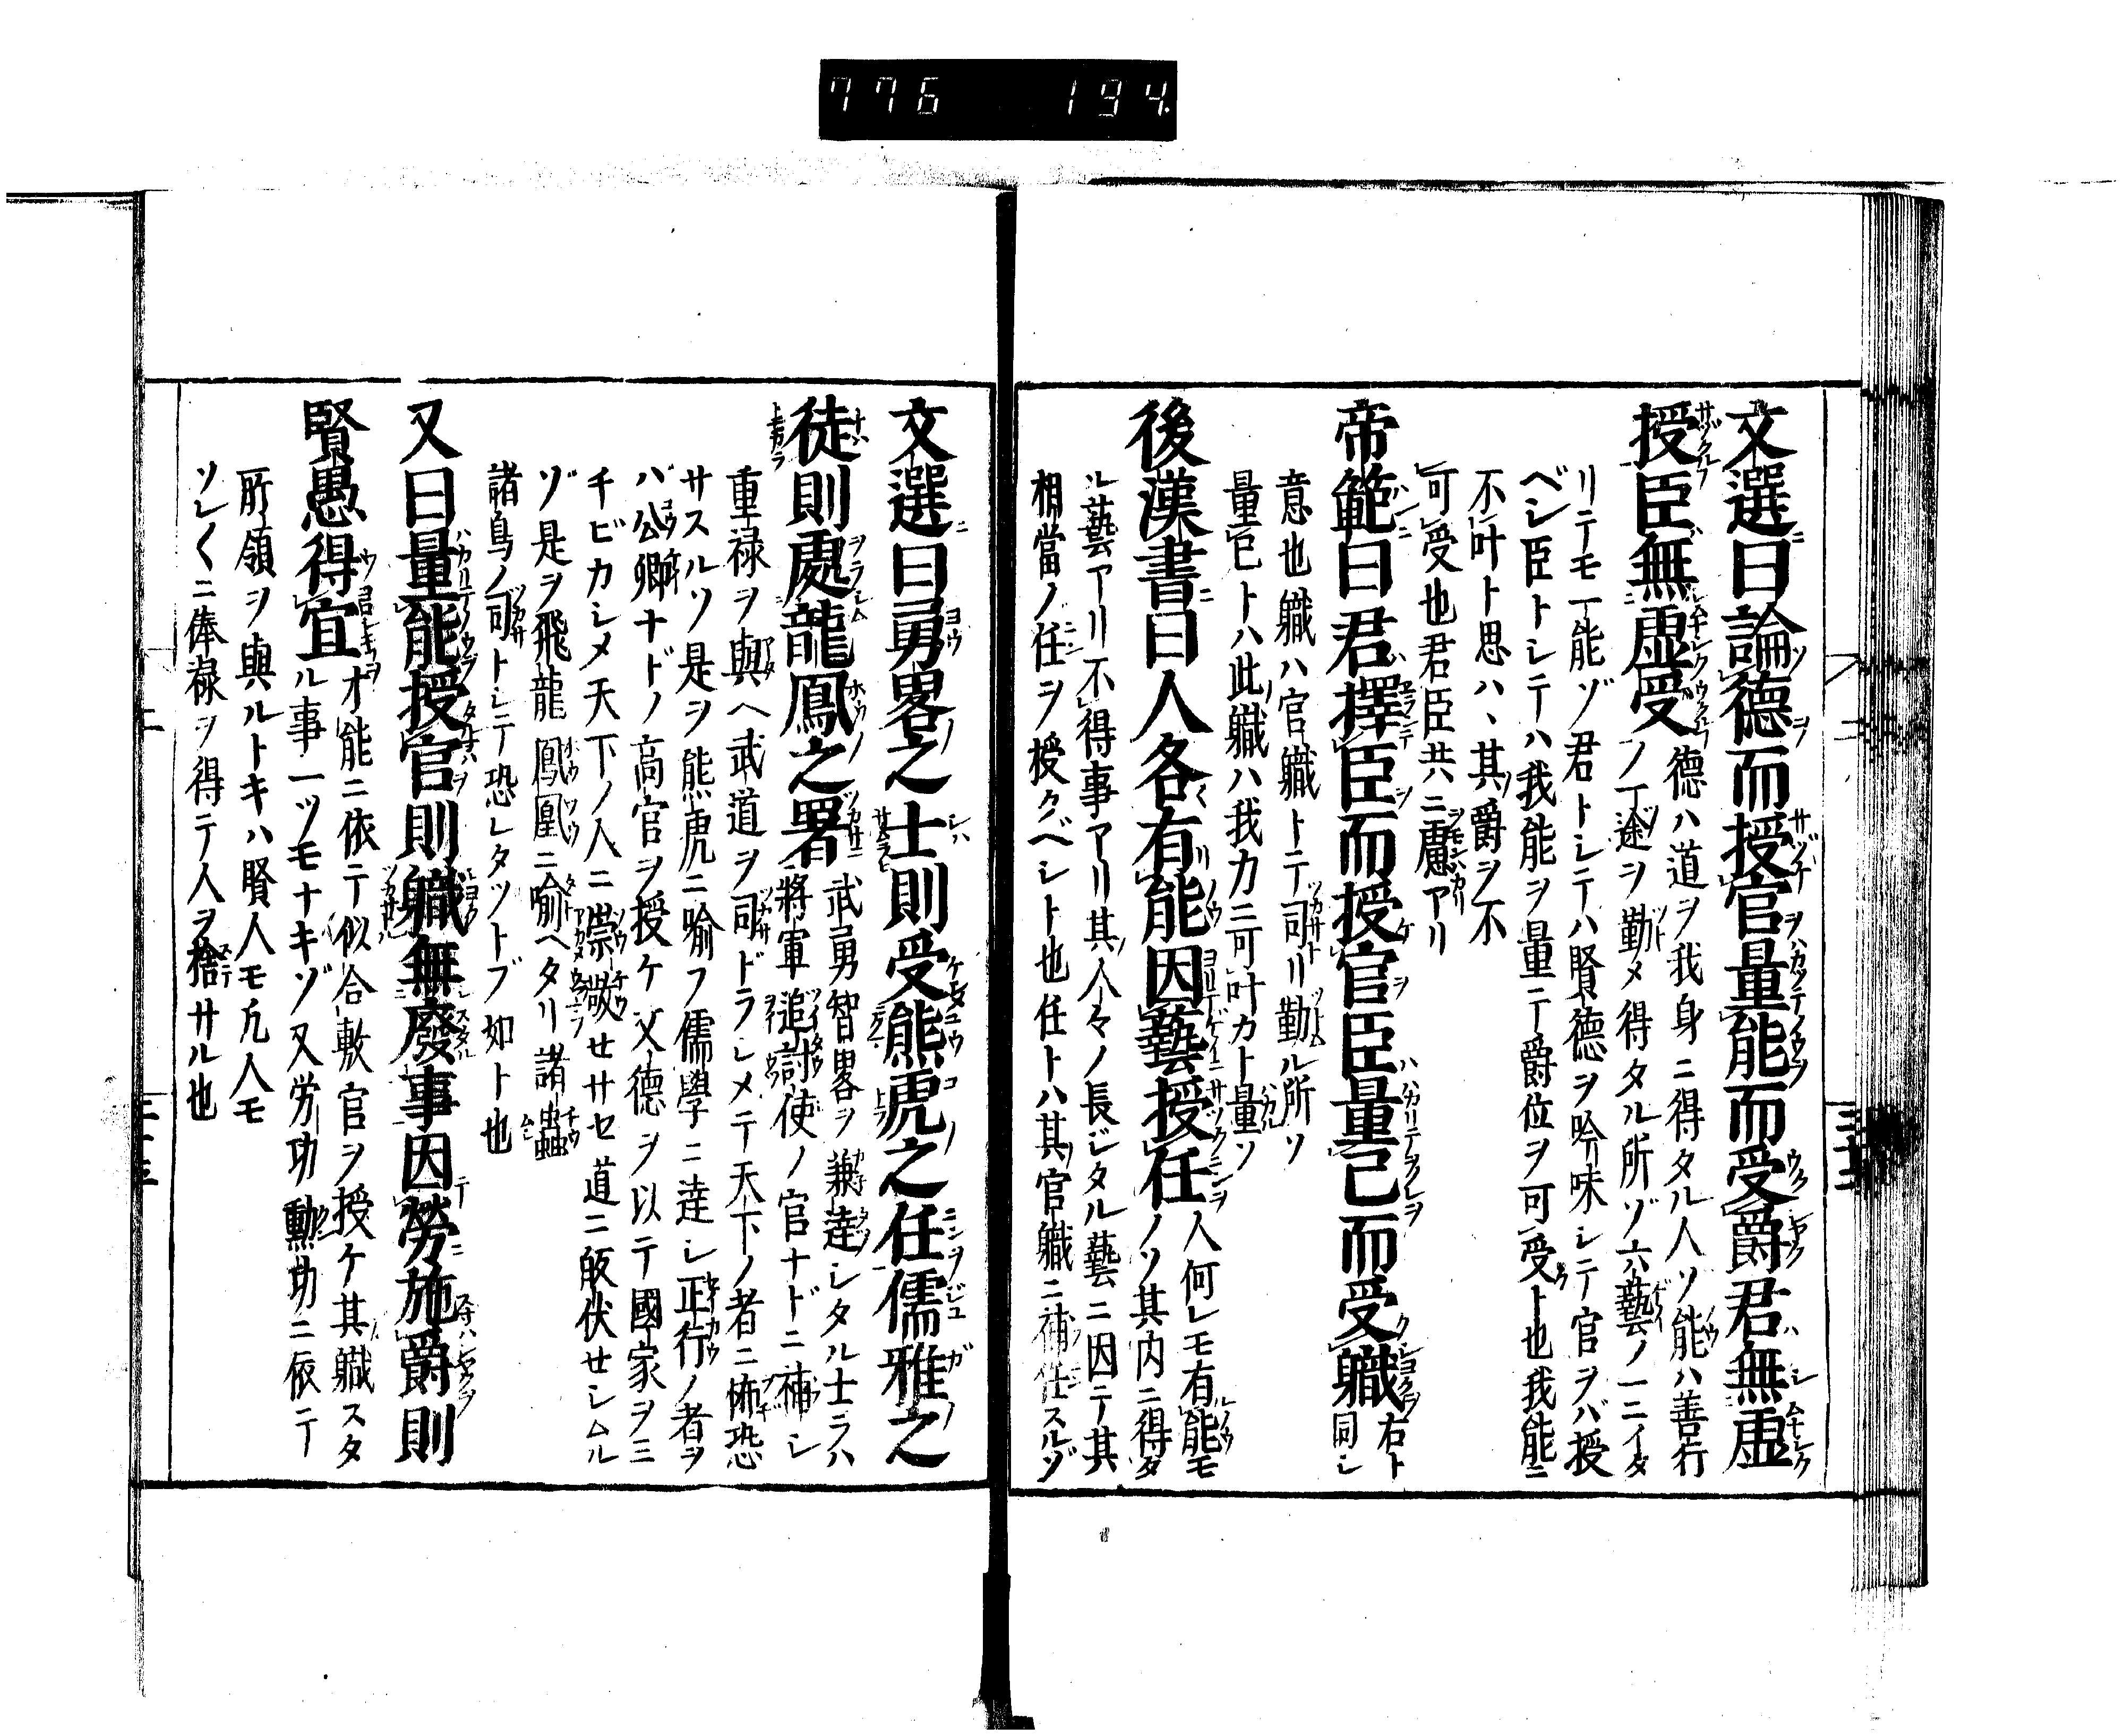 776 194.
文選曰論德而授官量能而受爵君無虛
授臣無虛受 德ハ道ヲ我身ニ得タル人ソ能ハ善行
ノ一途ヲ勤メ得タル所ゾ六藝ノ一ニイタ
リテモ一能ゾ君トシテハ賢德ヲ吟味シテ官ヲバ授
ベシ臣トシテハ我能ヲ量テ爵位ヲ可受ト也我能ニ
不叶ト思ハヽ其爵ヲ不
可受也君臣共ニ慮アリ
帝範曰君擇臣而授官臣量己而受職 右ト
同シ
意也職ハ官職トテ司リ勤ル所ソ
量已トハ此職ハ我力ニ可叶カト量ソ
後漢書曰人各有能因藝授任 人何レモ有能モ
ノソ其内ニ得タ
ル藝アリ不得事アリ其人々ノ長ジタル藝ニ因テ其
相當ノ任ヲ授クベシト也任トハ其官職ニ補任スルゾ
文選曰勇畧之士則受熊虎之任儒雅之
徒則處龍鳳之署 武勇智畧ヲ兼達シタル士ラハ
將軍追討使ノ官ナドニ補シ
重禄ヲ與ヘ武道ヲ司ドラシメテ天下ノ者ニ怖恐
サスルソ是ヲ熊虎ニ喩フ儒學ニ達シ正行ノ者ヲ
バ公卿ナドノ高官ヲ授ケ文德ヲ以テ國家ヲミ
チビカシメ天下ノ人ニ崇敬せサセ道ニ皈伏せシムル
ゾ是ヲ飛龍鳳凰ニ喩ヘタリ諸蟲
諸鳥ノ司トシテ恐レタツトブ如ト也
又曰量能授官則職無廢事因勞施爵則
賢愚得宜 才能ニ依テ似合敷官ヲ授ケ其職スタ
ル事一ツモナキゾ又労功勳功ニ依テ
所領ヲ與ルトキハ賢人モ凢人モ
ソレ〱ニ俸禄ヲ得テ人ヲ捨サル也